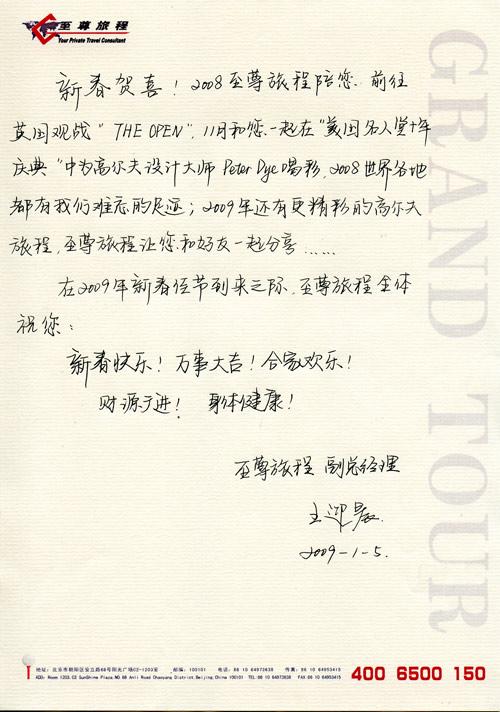 至尊旅程
Your Private Travel Consultant
新春贺喜！2008至尊旅程陪您前往
英国观战"THE OPEN"，11月和您一起在"美国名人堂十年
庆典"中为高尔夫设计大师Peter Dye喝彩，2008世界各地
都有我们难忘的足迹；2009年还有更精彩的高尔夫
旅程，至尊旅程让您和好友一起分享……
在2009年新春佳节到来之际，至尊旅程全体
祝您：
新春快乐！万事大吉！合家欢乐！
财源广进！身体健康！
至尊旅程 副总经理
王迎晨
2009-1-5.
GRAND TOUR
地址：北京市朝阳区安立路68号阳光广场C2-1203室 邮编：100101 电话：86 10 64973638 传真：86 10 64953415
ADD: Room 1203,C2 SunShine Plaza,NO 68 Anli Road Chaoyang District,Beijing,China 100101 TEL:86 10 64973638 FAX:86 10 64953415
400 6500 150